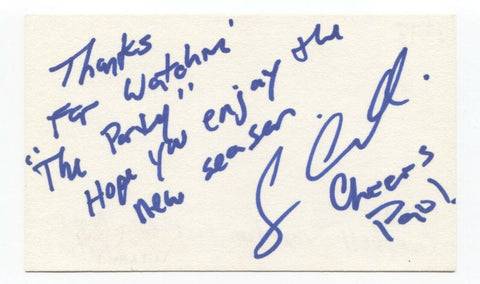 Thanks
For Watchin'
"The Party"
Hope you enjoy the
new season
Cheers